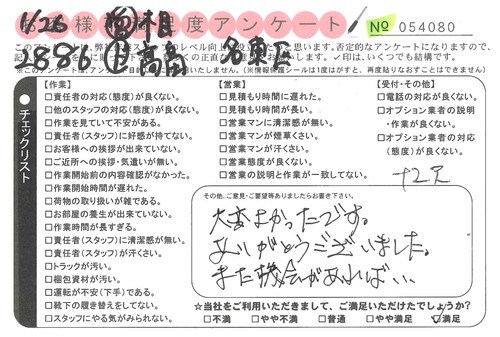 お客様満足度アンケート
№ 054080
1/26
※このアンケートは、
チェックリスト
【作業】
□責任者の対応(態度)が良くない。
□他のスタッフの対応(態度)が良くない。
□作業を見ていて不安がある。
□責任者(スタッフ)に好感が持てない。
□お客様への挨拶が出来ていない。
□ご近所への挨拶・気遣いが無い。
□作業開始前の内容確認がなかった。
□作業開始時間が遅れた。
□荷物の取り扱いが雑である。
□お部屋の養生が出来ていない。
□作業時間が長すぎる。
□責任者(スタッフ)に清潔感が無い。
□責任者(スタッフ)が汗くさい。
□トラックが汚い。
□梱包資材が汚い。
□運転が不安(下手)である。
□靴下の履き替えをしてない。
□スタッフにやる気がみられない。
【営業】
□見積もり時間に遅れた。
□見積もり時間が長い。
□営業マンに清潔感が無い。
□営業マンが煙草くさい。
□営業マンが汗くさい。
□営業態度が良くない。
□営業の説明と作業が一致してない。
【受付・その他】
□電話の対応が良くない。
□オプション業者の説明
・作業が良くない。
□オプション業者の対応
(態度)が良くない。
その他、ご意見・ご要望等ありましたらお書き下さい。
大変よかったです。
ありがとうございました。
また機会があれば...
☆当社をご利用いただきまして、ご満足いただけたでしょうか?
□不満 □やや不満 □普通 □やや満足 ☑満足